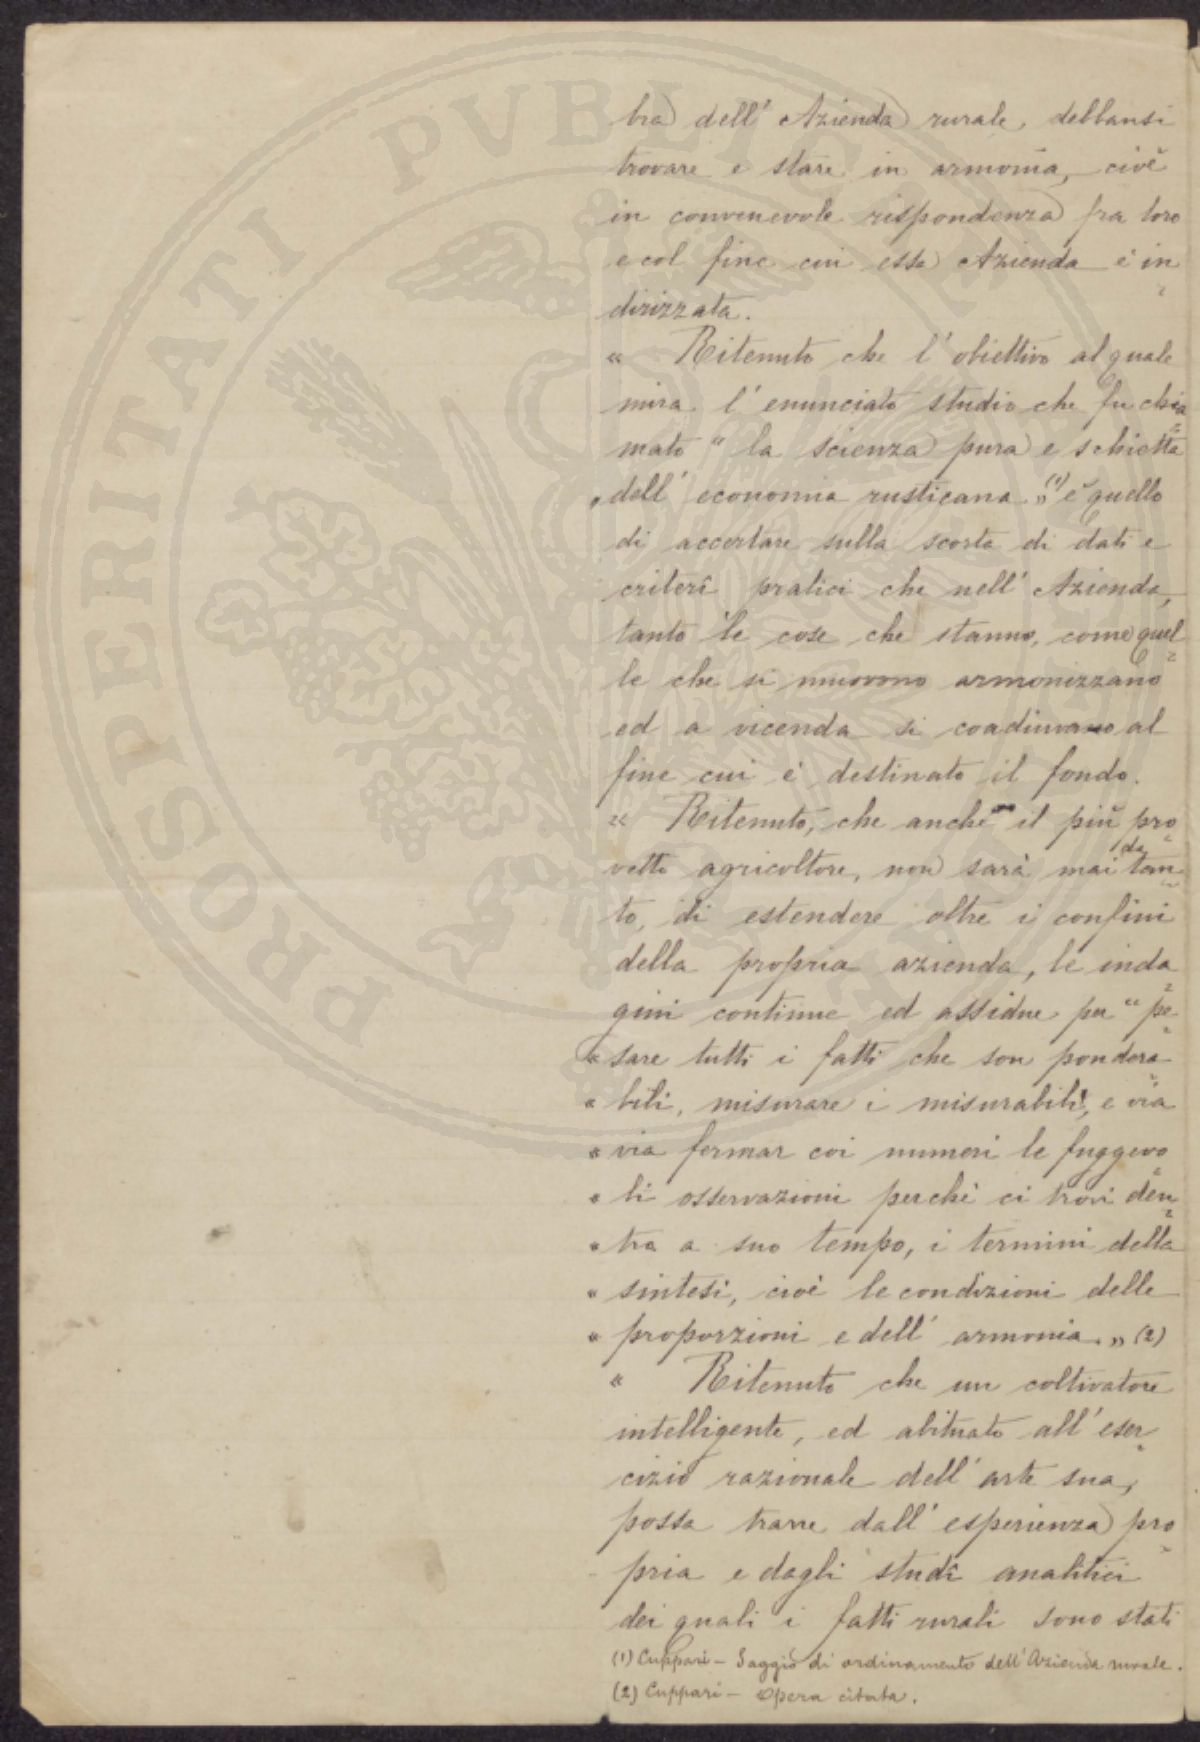 bra dell' Azienda rurale, debbansi
trovare e stare in armonia, cioè
in convenevole rispondenza fra loro
e col fine cui essa Azienda è in
dirizzata.
" Ritenuto che l' obiettivo al quale
mira l' enunciato studio che fu chia
mato " la scienza pura e schietta
" dell' economia rusticana " (1) è quello
di accertare sulla scorta di dati e
criterî pratici che nell' Azienda,
tanto le cose che stanno, come quel
le che si muovono armonizzano
ed a vicenda si coadiuvano al
fine cui è destinato il fondo.
" Ritenuto, che anche il più pro
vetto agricoltore, non sarà mai da tan
to, di estendere oltre i confini
della propria azienda, le inda
gini continue ed assidue per " pe
" sare tutti i fatti che son pondera
" bili, misurare i misurabili, e via
" via fermar coi numeri le fuggevo
" li osservazioni perchè ci trovi den
" tra a suo tempo, i termini della
" sintesi, cioè le condizioni delle
" proporzioni e dell' armonia. " (2)
" Ritenuto che un coltivatore
intelligente, ed abituato all' eser
cizio razionale dell' arte sua,
possa trarre dall' esperienza pro
pria e dagli studî analitici
dei quali i fatti rurali sono stati
(1) Cuppari - Saggio di ordinamento dell' Azienda rurale.
(2) Cuppari - Opera citata.
PROSPERITATI PVBLICAE